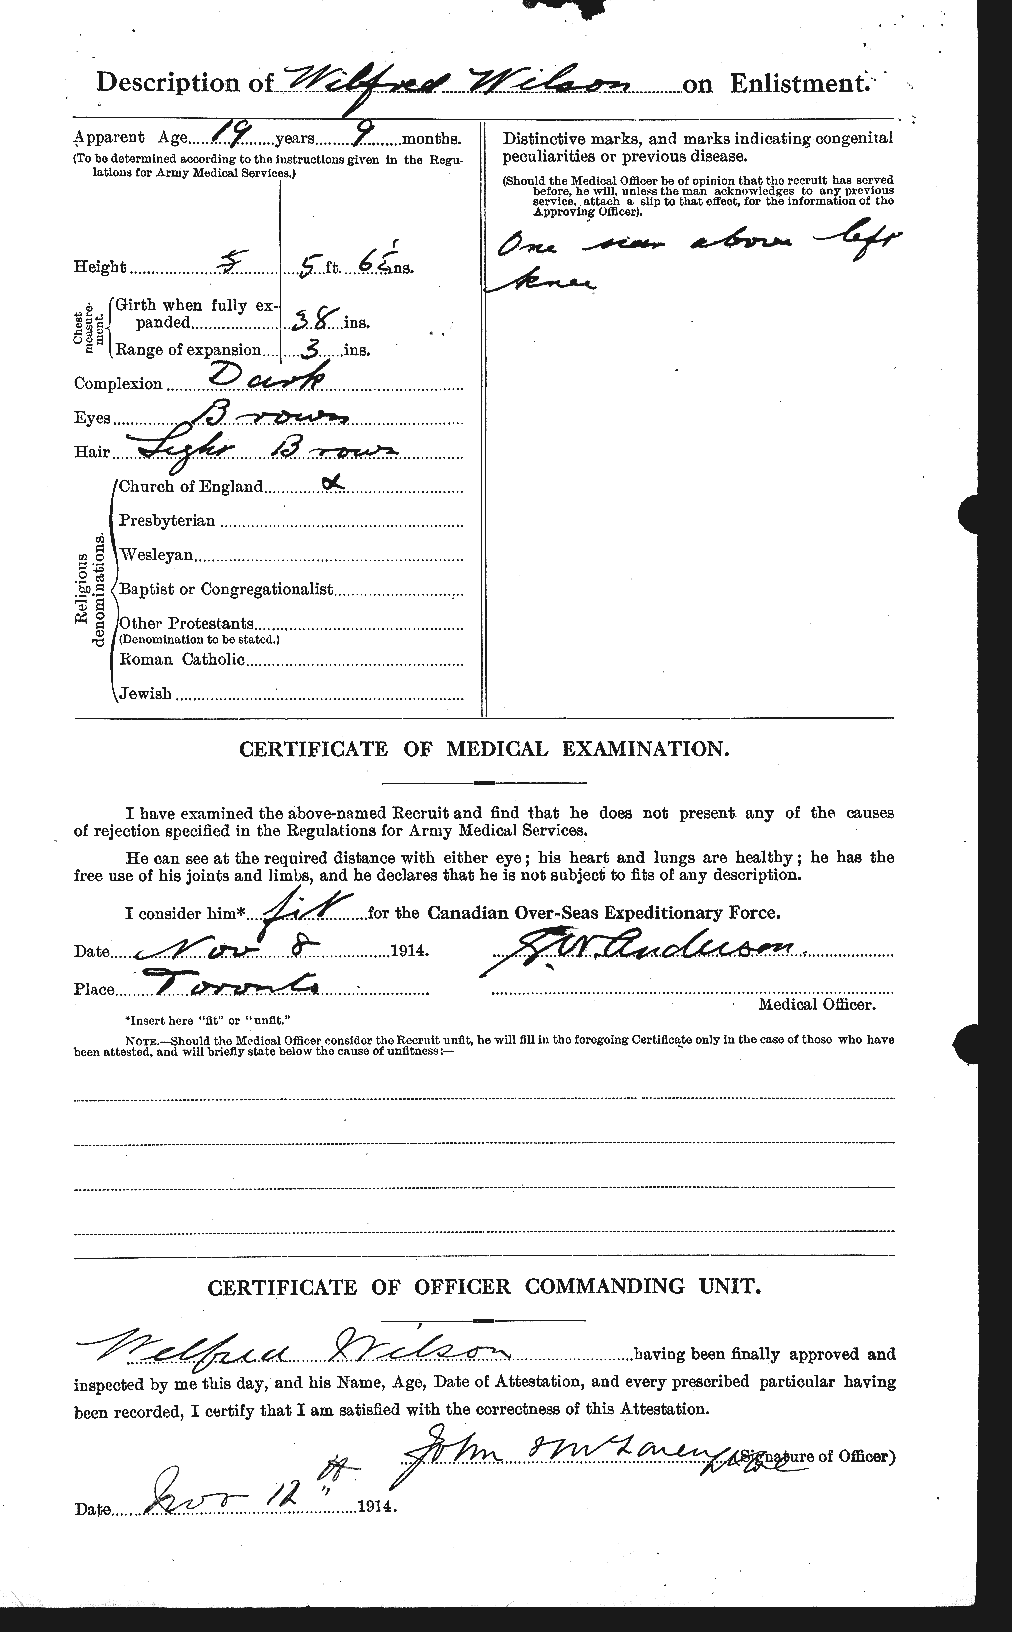 Description of Wilfred Wilson on Enlistment.
Apparent Age 19 years 9 months.
(To be determined according to the instructions given in the Regu-
lations for Army Medical Services.)
Height 5 5 ft. 6½ ins.
Chest measurement.
Girth when fully ex-
panded 38 ins.
Range of expansion 3 ins.
Complexion Dark
Eyes Brown
Hair Light Brown
Religious denominations.
Church of England x
Presbyterian
Wesleyan
Baptist or Congregationalist
Other Protestants
(Denomination to be stated.)
Roman Catholic
Jewish
Distinctive marks, and marks indicating congenital
peculiarities or previous disease.
(Should the Medical Officer be of opinion that the recruit has served
before, he will, unless the man acknowledges to any previous
service, attach a slip to that effect, for the information of the
Approving Officer).
One scar above left
knee
CERTIFICATE OF MEDICAL EXAMINATION.
I have examined the above-named Recruit and find that he does not present any of the causes
of rejection specified in the Regulations for Army Medical Services.
He can see at the required distance with either eye; his heart and lungs are healthy; he has the
free use of his joints and limbs, and he declares that he is not subject to fits of any description.
I consider him* fit for the Canadian Over-Seas Expeditionary Force.
Date Nov 8 1914.
W. Anderson
Place Toronto
Medical Officer.
*Insert here "fit" or "unfit."
NOTE.—Should the Medical Officer consider the Recruit unfit, he will fill in the foregoing Certificate only in the case of those who have
been attested, and will briefly state below the cause of unfitness:—
CERTIFICATE OF OFFICER COMMANDING UNIT.
Wilfred Wilson having been finally approved and
inspected by me this day, and his Name, Age, Date of Attestation, and every prescribed particular having
been recorded, I certify that I am satisfied with the correctness of this Attestation.
John (Signature of Officer)
Date Nov 12th 1914.